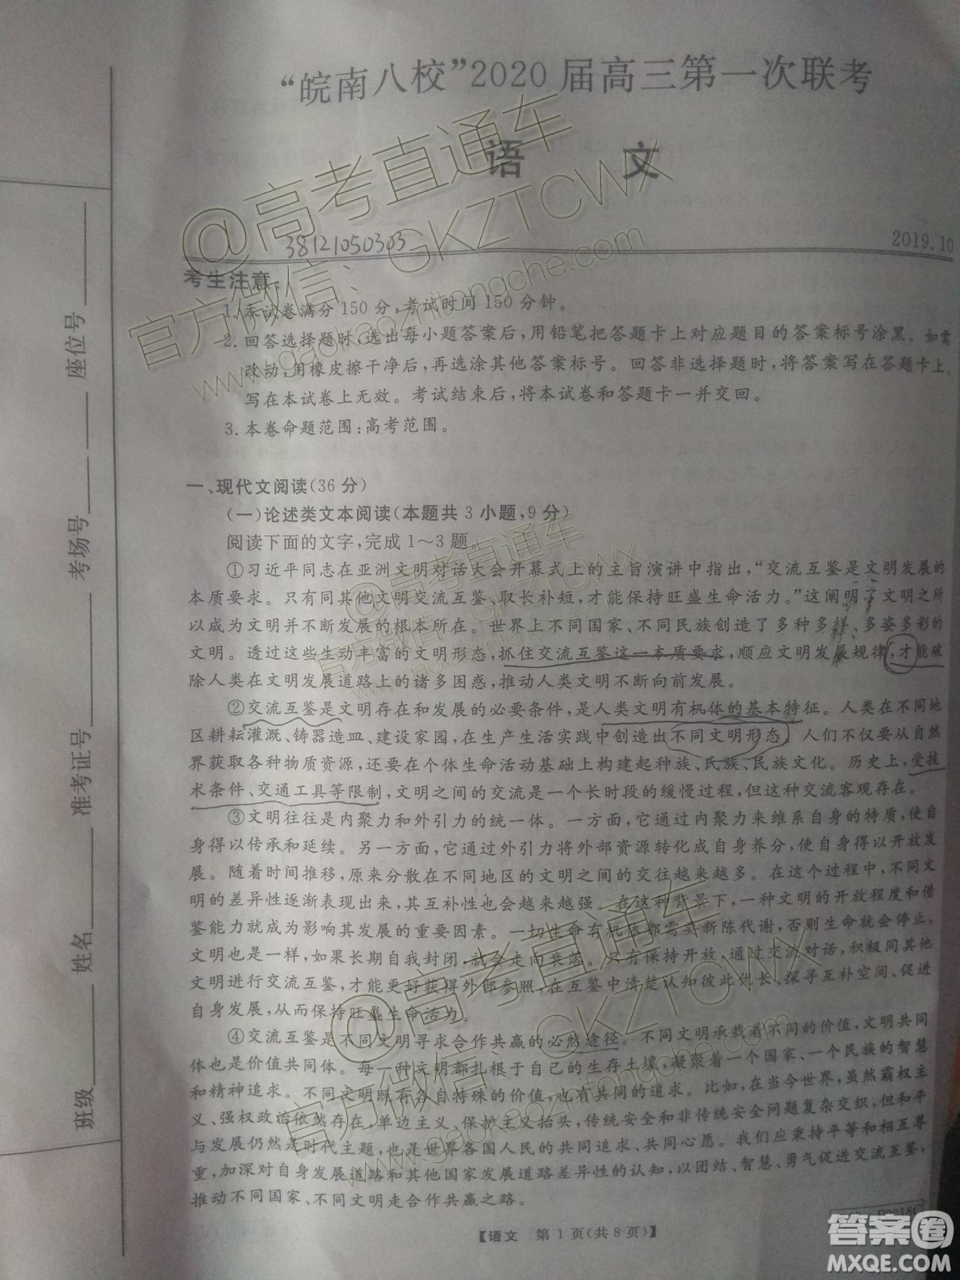 “皖南八校”2020届高三第一次联考
语 文
38121050303
2019.10
考生注意:
1.本试卷满分150分,考试时间150分钟。
2.回答选择题时,选出每小题答案后,用铅笔把答题卡上对应题目的答案标号涂黑。如需
改动,用橡皮擦干净后,再选涂其他答案标号。回答非选择题时,将答案写在答题卡上。
写在本试卷上无效。考试结束后,将本试卷和答题卡一并交回。
3.本卷命题范围:高考范围。
一、现代文阅读(36分)
(一)论述类文本阅读(本题共3小题,9分)
阅读下面的文字,完成1~3题。
①习近平同志在亚洲文明对话大会开幕式上的主旨演讲中指出,“交流互鉴是文明发展的
本质要求。只有同其他文明交流互鉴、取长补短,才能保持旺盛生命活力。”这阐明了文明之所
以成为文明并不断发展的根本所在。世界上不同国家、不同民族创造了多种多样、多姿多彩的
文明。透过这些生动丰富的文明形态,抓住交流互鉴这一本质要求,顺应文明发展规律,才能破
除人类在文明发展道路上的诸多困惑,推动人类文明不断向前发展。
②交流互鉴是文明存在和发展的必要条件,是人类文明有机体的基本特征。人类在不同地
区耕耘灌溉、铸器造皿、建设家园,在生产生活实践中创造出不同文明形态。人们不仅要从自然
界获取各种物质资源,还要在个体生命活动基础上构建起种族、氏族、民族文化。历史上,受技
术条件、交通工具等限制,文明之间的交流是一个长时段的缓慢过程,但这种交流客观存在。
③文明往往是内聚力和外引力的统一体。一方面,它通过内聚力来维系自身的特质,使自
身得以传承和延续。另一方面,它通过外引力将外部资源转化成自身养分,使自身得以开放发
展。随着时间推移,原来分散在不同地区的文明之间的交往越来越多。在这个过程中,不同文
明的差异性逐渐表现出来,其互补性也会越来越强。在这种背景下,一种文明的开放程度和借
鉴能力就成为影响其发展的重要因素。一切生命有机体都需要新陈代谢,否则生命就会停止。
文明也是一样,如果长期自我封闭,就会走向衰落。只有保持开放,通过交流对话,积极同其他
文明进行交流互鉴,才能更好获得外部参照,在互鉴中清楚认知彼此优长、探寻互补空间、促进
自身发展,从而保持旺盛生命活力。
④交流互鉴是不同文明寻求合作共赢的必然途径。不同文明承载着不同的价值,文明共同
体也是价值共同体。每一种文明都扎根于自己的生存土壤,凝聚着一个国家、一个民族的智慧
和精神追求。不同文明既有各自特殊的价值,也有共同的追求。比如,在当今世界,虽然霸权主
义、强权政治依然存在,单边主义、保护主义抬头,传统安全和非传统安全问题复杂交织,但和平
与发展仍然是时代主题,也是世界各国人民的共同追求、共同心愿。我们应秉持平等和相互尊
重,加深对自身发展道路和其他国家发展道路差异性的认知,以团结、智慧、勇气促进交流互鉴,
推动不同国家、不同文明走合作共赢之路。
【语文 第1页(共8页)】
班级 姓名 准考证号 考场号 座位号
@高考直通车
官方微信:GKZTCWX
www.gaokaozhitongche.com
@高考直通车
官方微信:GKZTCWX
@高考直通车
官方微信:GKZTCWX
答案圈
MXQE.COM